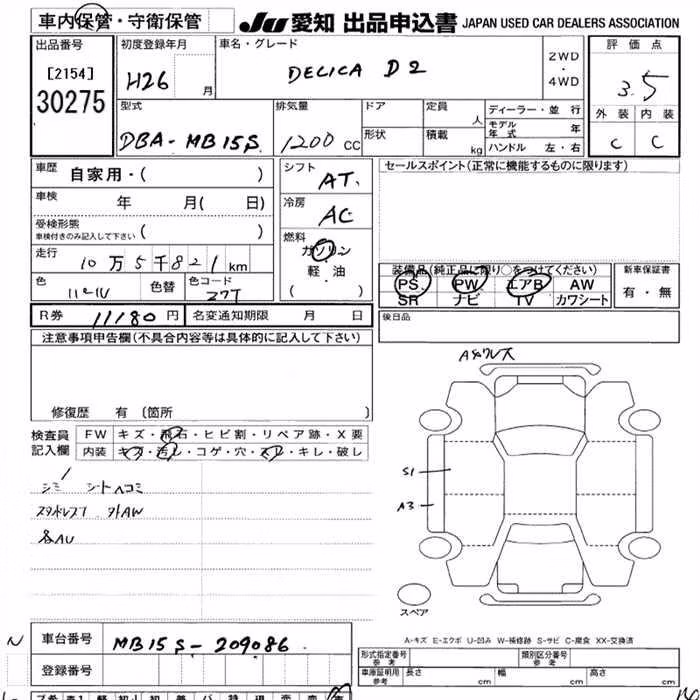 車内保管・守衛保管 JU 愛知 出品申込書 JAPAN USED CAR DEALERS ASSOCIATION
出品番号 初度登録年月 車名・グレード 評価点
[2154] 30275 H26 月 DELICA D2 2WD・4WD 3.5
型式 排気量 ドア 定員 人 ディーラー・並行 外装 内装
DBA-MB15S 1200 CC 形状 積載 kg モデル年式 年 ハンドル 左・右 C C
車歴 自家用・( ) シフト AT セールスポイント(正常に機能するものに限ります)
車検 年 月( 日) 冷房 AC
受検形態 車検付きのみ記入して下さい ( )
走行 10万5千821km 燃料 ガソリン 軽・油 ( )
装備品(純正品に限り○をつけてください) 新車保証書
色 色替 色コード Z7T PS PW エアB AW 有・無
SR ナビ TV カワシート
R券 11180円 名変通知期限 月 日 後日品
注意事項申告欄(不具合内容等は具体的に記入して下さい)
修復歴 有 (箇所 )
検査員記入欄 FW キズ・飛石・ヒビ割・リペア跡・X要
内装 キズ・汚レ・コゲ・穴・スレ・キレ・破し
シミ シートヘコミ
外AW
各AU
S1
A3
スペア
A-キズ E-エクボ U-凹み W-補修跡 S-サビ C-腐食 XX-交換済
車台番号 MB15S-209086
登録番号
形式指定番号 参考 類別区分番号 参考
車庫証明用 参考 長さ cm 幅 cm 高さ cm